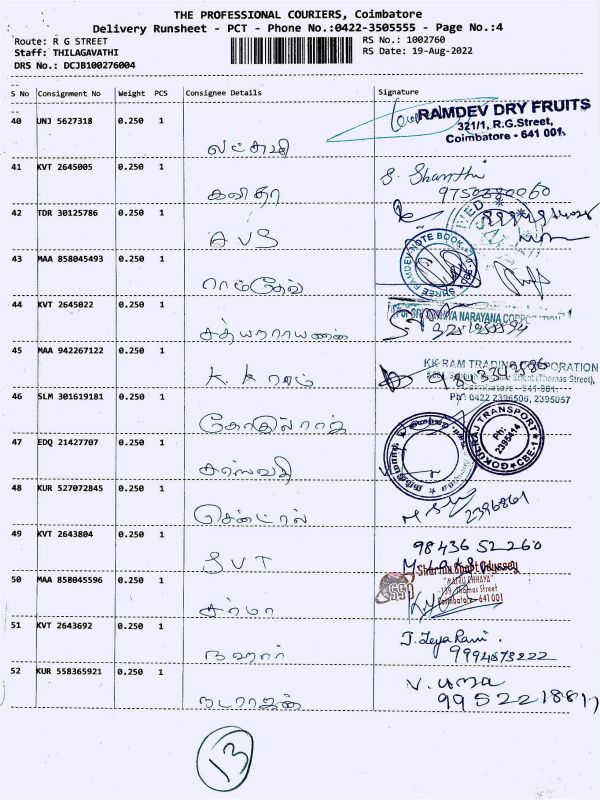 THE PROFESSIONAL COURIERS, Coimbatore
Delivery Runsheet - PCT - Phone No.:0422-3505555 - Page No.:4
Route: R G STREET
RS No.: 1002760
Staff: THILAGAVATHI
RS Date: 19-Aug-2022
DRS No.: DCJB100276004
S No Consignment No Weight PCS Consignee Details Signature
40 UNJ 5627318 0.250 1
RAMDEV DRY FRUITS
321/1, R.G.Street,
Coimbatore - 641 001.
லட்சுமி
41 KVT 2645005 0.250 1
S. Shanthi
கவிதா
42 TDR 30125786 0.250 1
AVS
43 MAA 858045493 0.250 1
SHREE RAMDEV NOTE BOOK
ராம்தேவ்
44 KVT 2645022 0.250 1
NARAYANA CORPORATION
சத்யநாராயணன்
45 MAA 942267122 0.250 1
KK RAM TRADING CORPORATION
(Thomas Street),
K.K ராம்
Ph: 0422 2396506, 2395057
46 SLM 301619181 0.250 1
TRANSPORT
Ph:
2395414
CBE-1
கோகுல்ராஜ்
47 EDQ 21427707 0.250 1
சரஸ்வதி
48 KUR 527072845 0.250 1
2396861
சென்ட்ரல்
49 KVT 2643804 0.250 1
98436 52260
SVT
50 MAA 858045596 0.250 1
Sharma Sport Odyssey
"MATRU CHHAYA"
139, Thomas Street
Coimbatore - 641 001
SSO
சர்மா
51 KVT 2643692 0.250 1
J. Jeya Rani
நஹார்
52 KUR 558365921 0.250 1
V. uma
நடராஜன்
13